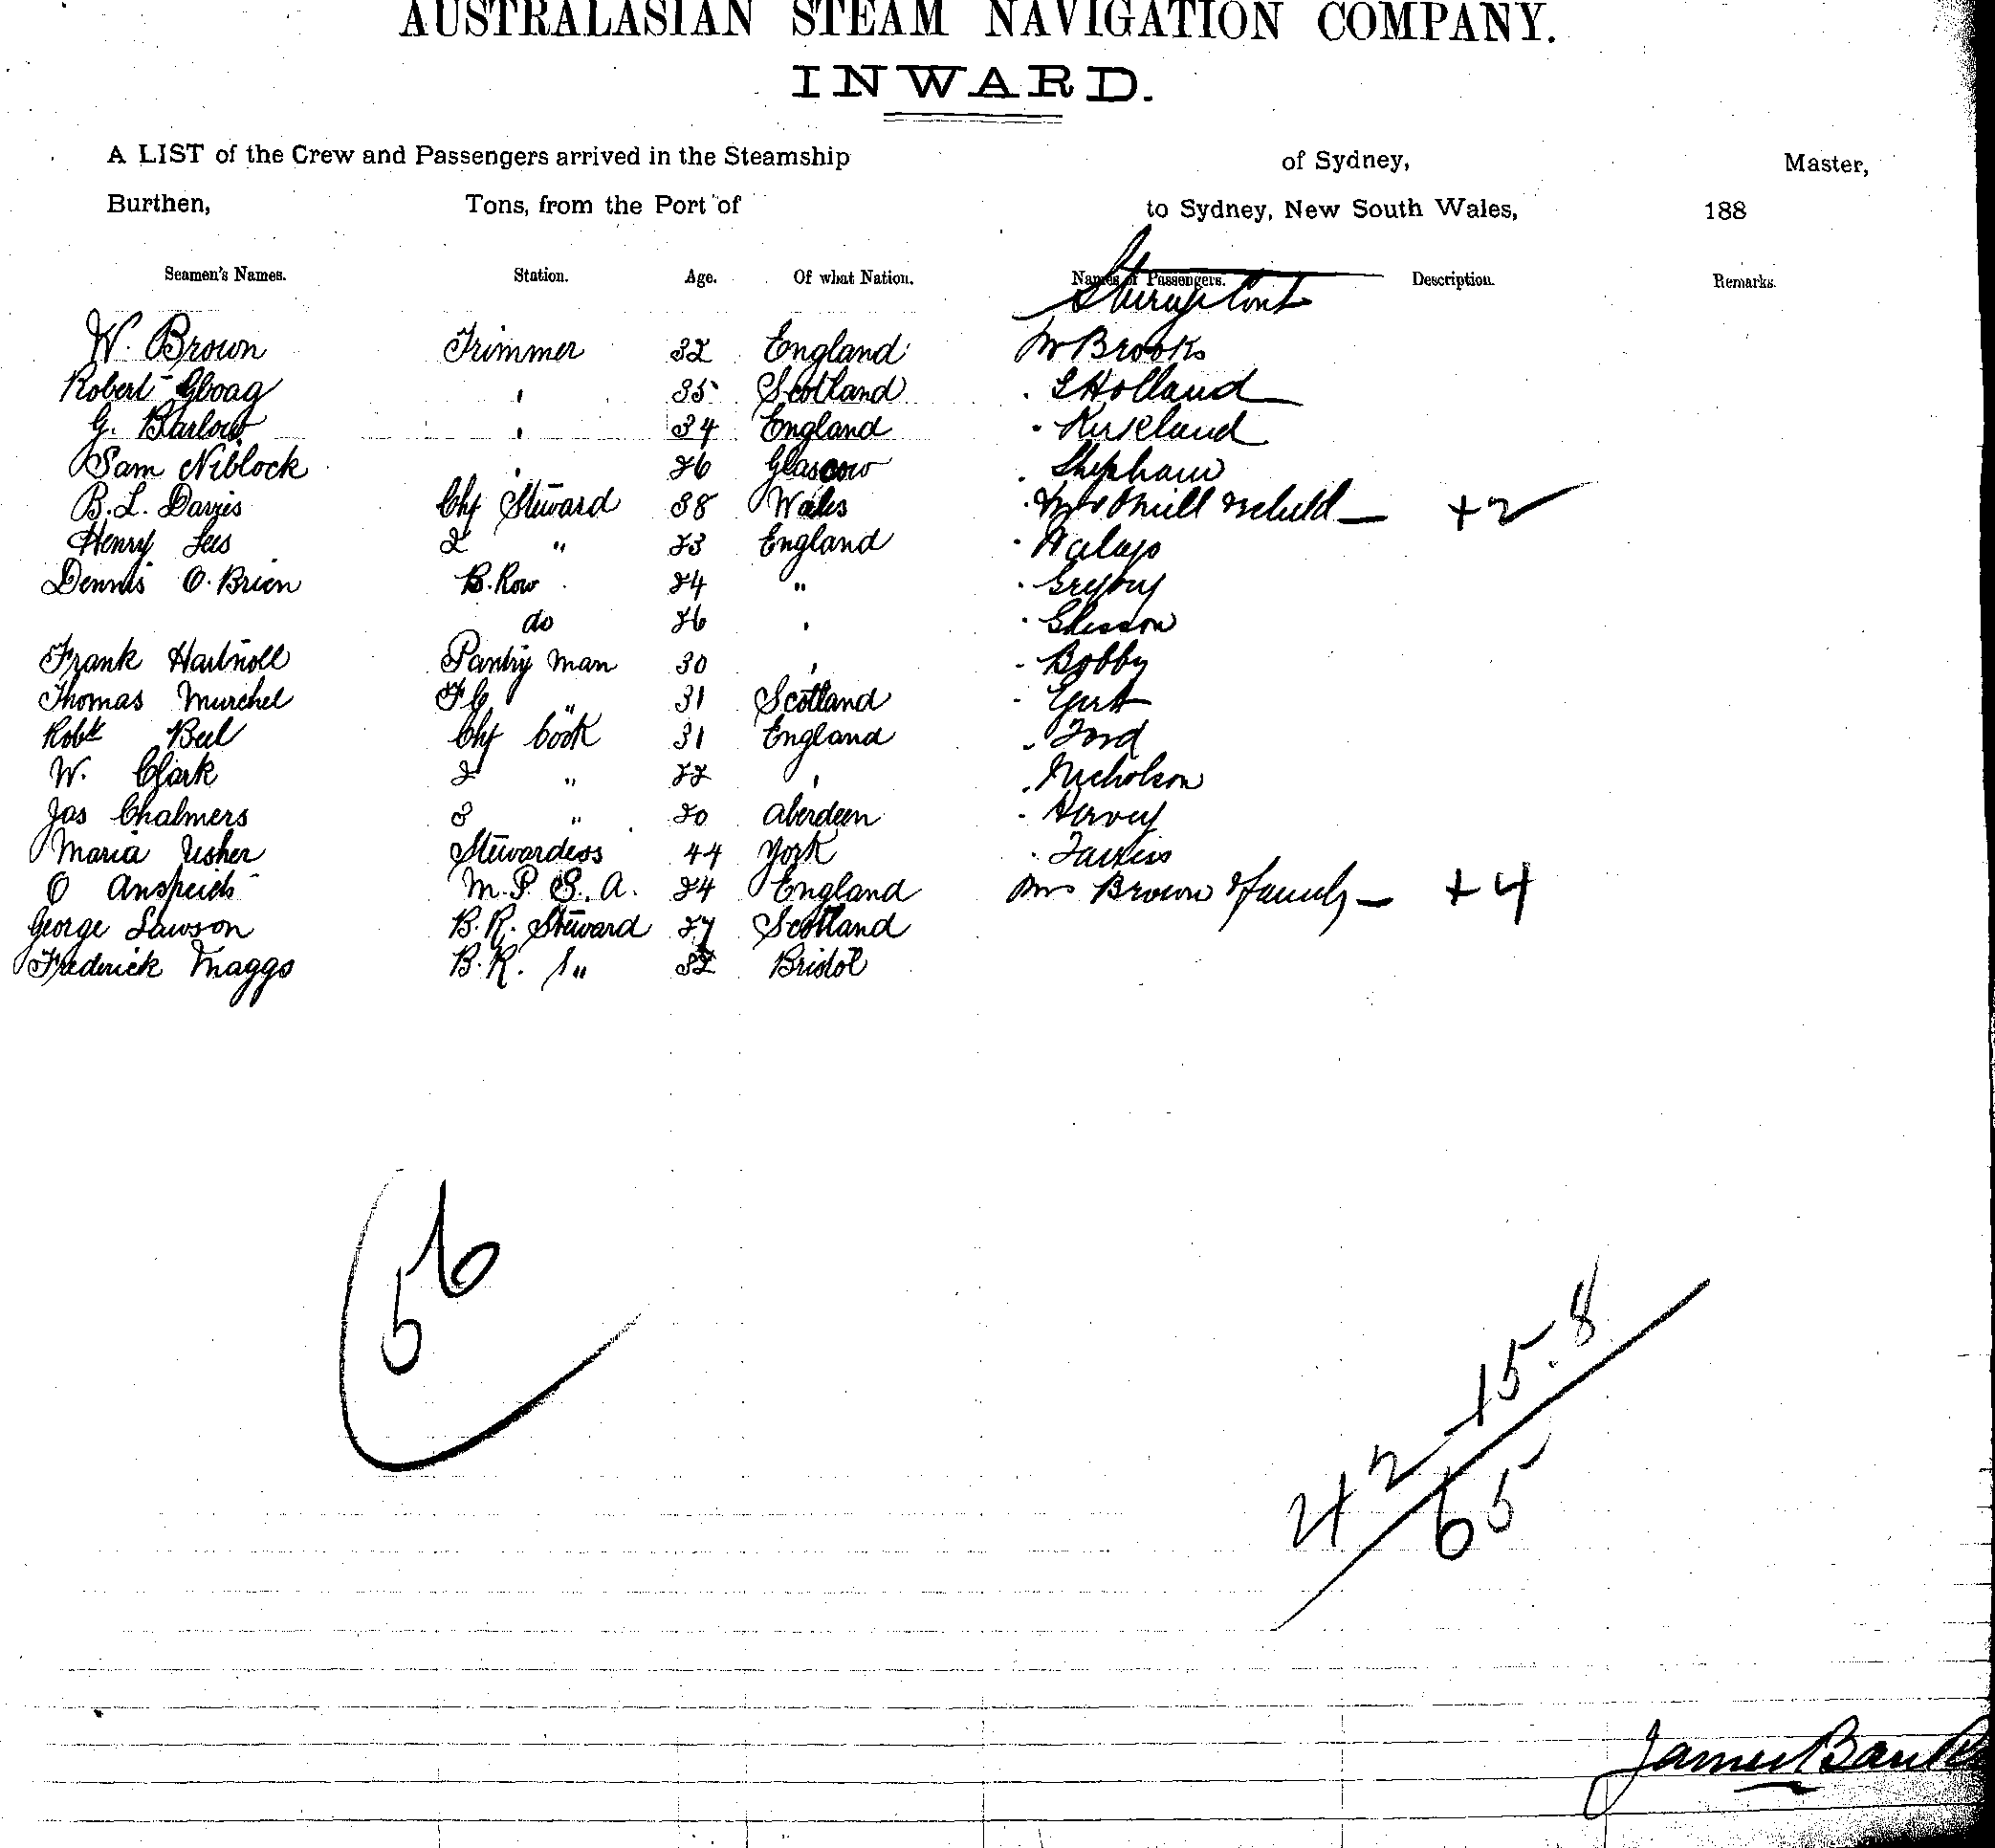 AUSTRALASIAN STEAM NAVIGATION COMPANY.
INWARD.
A LIST of the Crew and Passengers arrived in the Steamship of Sydney, Master,
Burthen, Tons, from the Port of to Sydney, New South Wales, 188
Seamen's Names. Station. Age. Of what Nation. Names of Passengers. Description. Remarks.
Steerage Cont
W. Brown Trimmer 32 England Mr Brooks
Robert Gloag " 35 Scotland " Holland
G. Barlow " 34 England " Kirkland
Sam Niblock " 26 Glascow "
B. L. Davies Chf Steward 38 Wales +2
Henry Lees 2 " 23 England "
Dennis O. Brien B. Row 24 " " Gregory
do 26 " "
Frank Hartnoll Pantry man 30 " " Bobby
Thomas Murchel " 31 Scotland "
Robt Bell Chf Cook 31 England " Ford
W. Clark 2 " 22 " " Nicholson
Jas Chalmers 3 " 20 Aberdeen " Harvey
Maria Usher Stewardess 44 York "
O M. P. S. A. 24 England Mrs Brown & family +4
George Lawson B. R. Steward 27 Scotland
Frederick Maggs B. R. S " 32 Bristol
56
42 15.8
65
James Banks